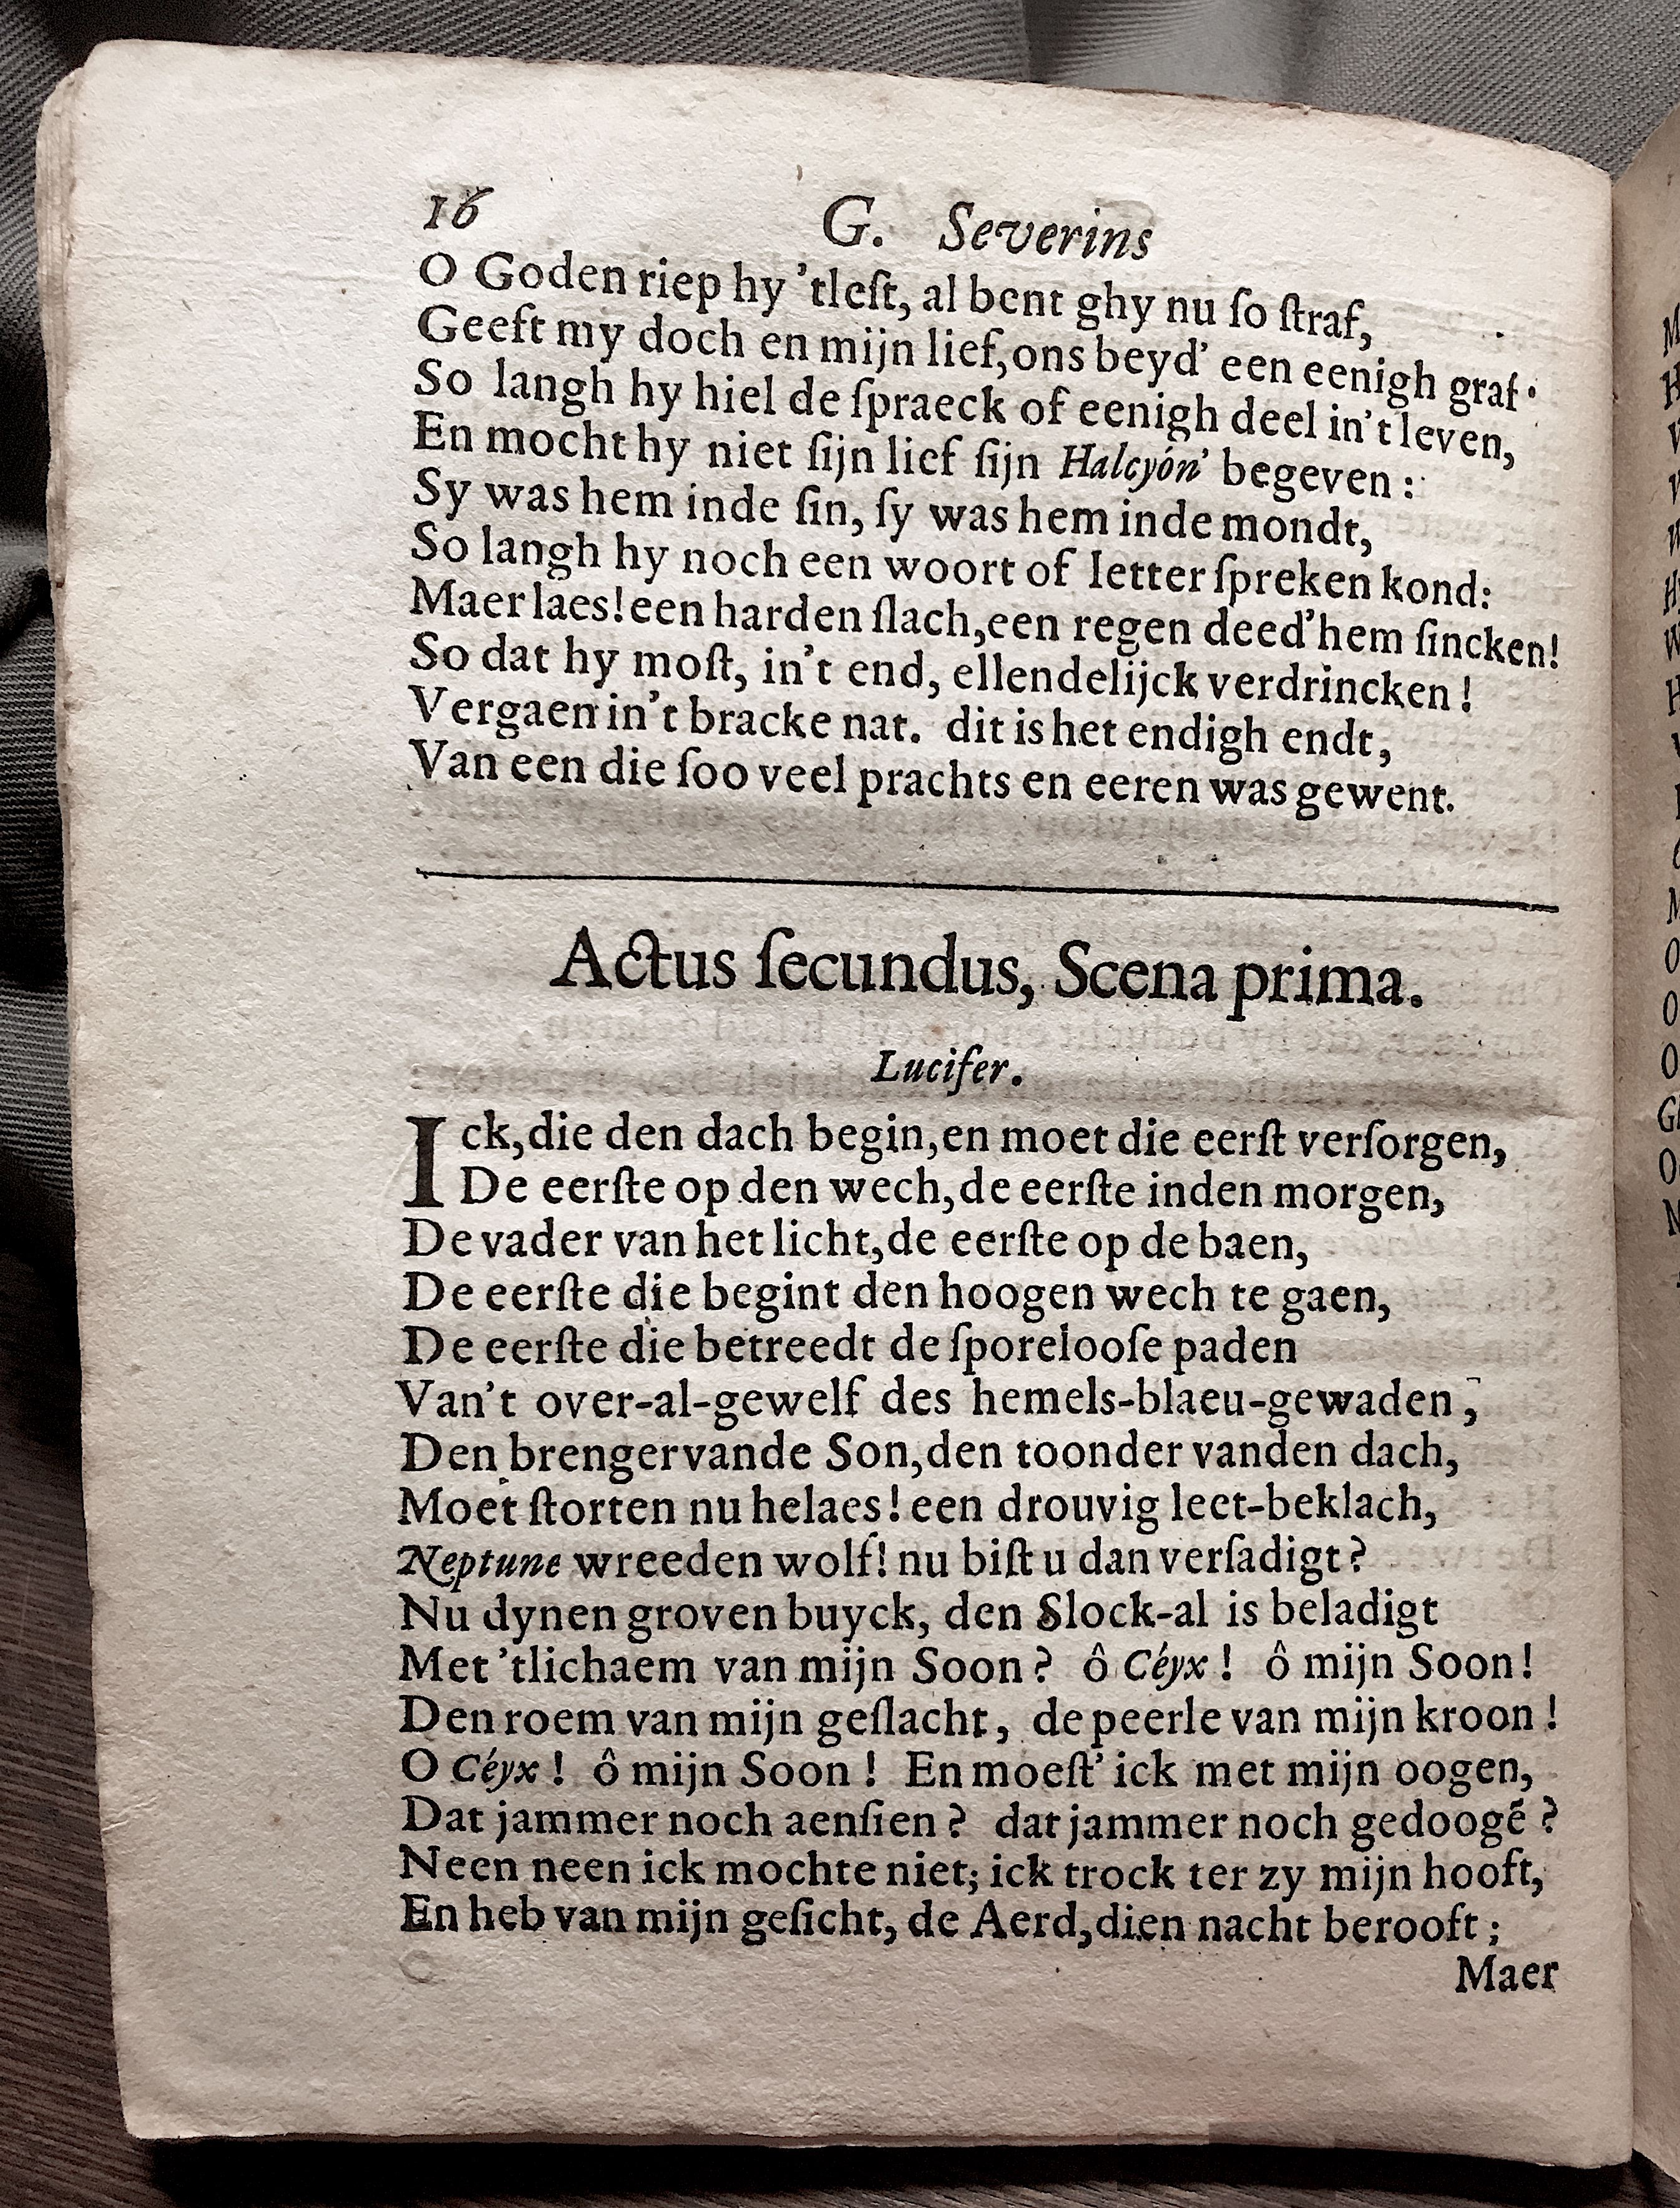 16 G. Severins
O Goden riep hy 'tleſt, al bent ghy nu ſo ſtraf,
Geeft my doch en mijn lief, ons beyd' een eenigh graf.
So langh hy hiel de ſpraeck of eenigh deel in't leven,
En mocht hy niet ſijn lief ſijn Halcyón' begeven:
Sy was hem inde ſin, ſy was hem inde mondt,
So langh hy noch een woort of letter ſpreken kond:
Maer laes! een harden ſlach, een regen deed' hem ſincken!
So dat hy moſt, in't end, ellendelijck verdrincken!
Vergaen in't bracke nat. dit is het endigh endt,
Van een die ſoo veel prachts en eeren was gewent.
Actus ſecundus, Scena prima.
Lucifer.
Ick, die den dach begin, en moet die eerſt verſorgen,
De eerſte op den wech, de eerſte inden morgen,
De vader van het licht, de eerſte op de baen,
De eerſte die begint den hoogen wech te gaen,
De eerſte die betreedt de ſporelooſe paden
Van't over-al-gewelf des hemels-blaeu-gewaden,
Den brenger vande Son, den toonder vanden dach,
Moet ſtorten nu helaes! een drouvig leet-beklach,
Neptune wreeden wolf! nu biſt u dan verſadigt?
Nu dynen groven buyck, den Slock-al is beladigt
Met 'tlichaem van mijn Soon? ô Céyx! ô mijn Soon!
Den roem van mijn geſlacht, de peerle van mijn kroon!
O Céyx! ô mijn Soon! En moeſt' ick met mijn oogen,
Dat jammer noch aenſien? dat jammer noch gedoogē?
Neen neen ick mochte niet; ick trock ter zy mijn hooft,
En heb van mijn geſicht, de Aerd, dien nacht berooft;
Maer